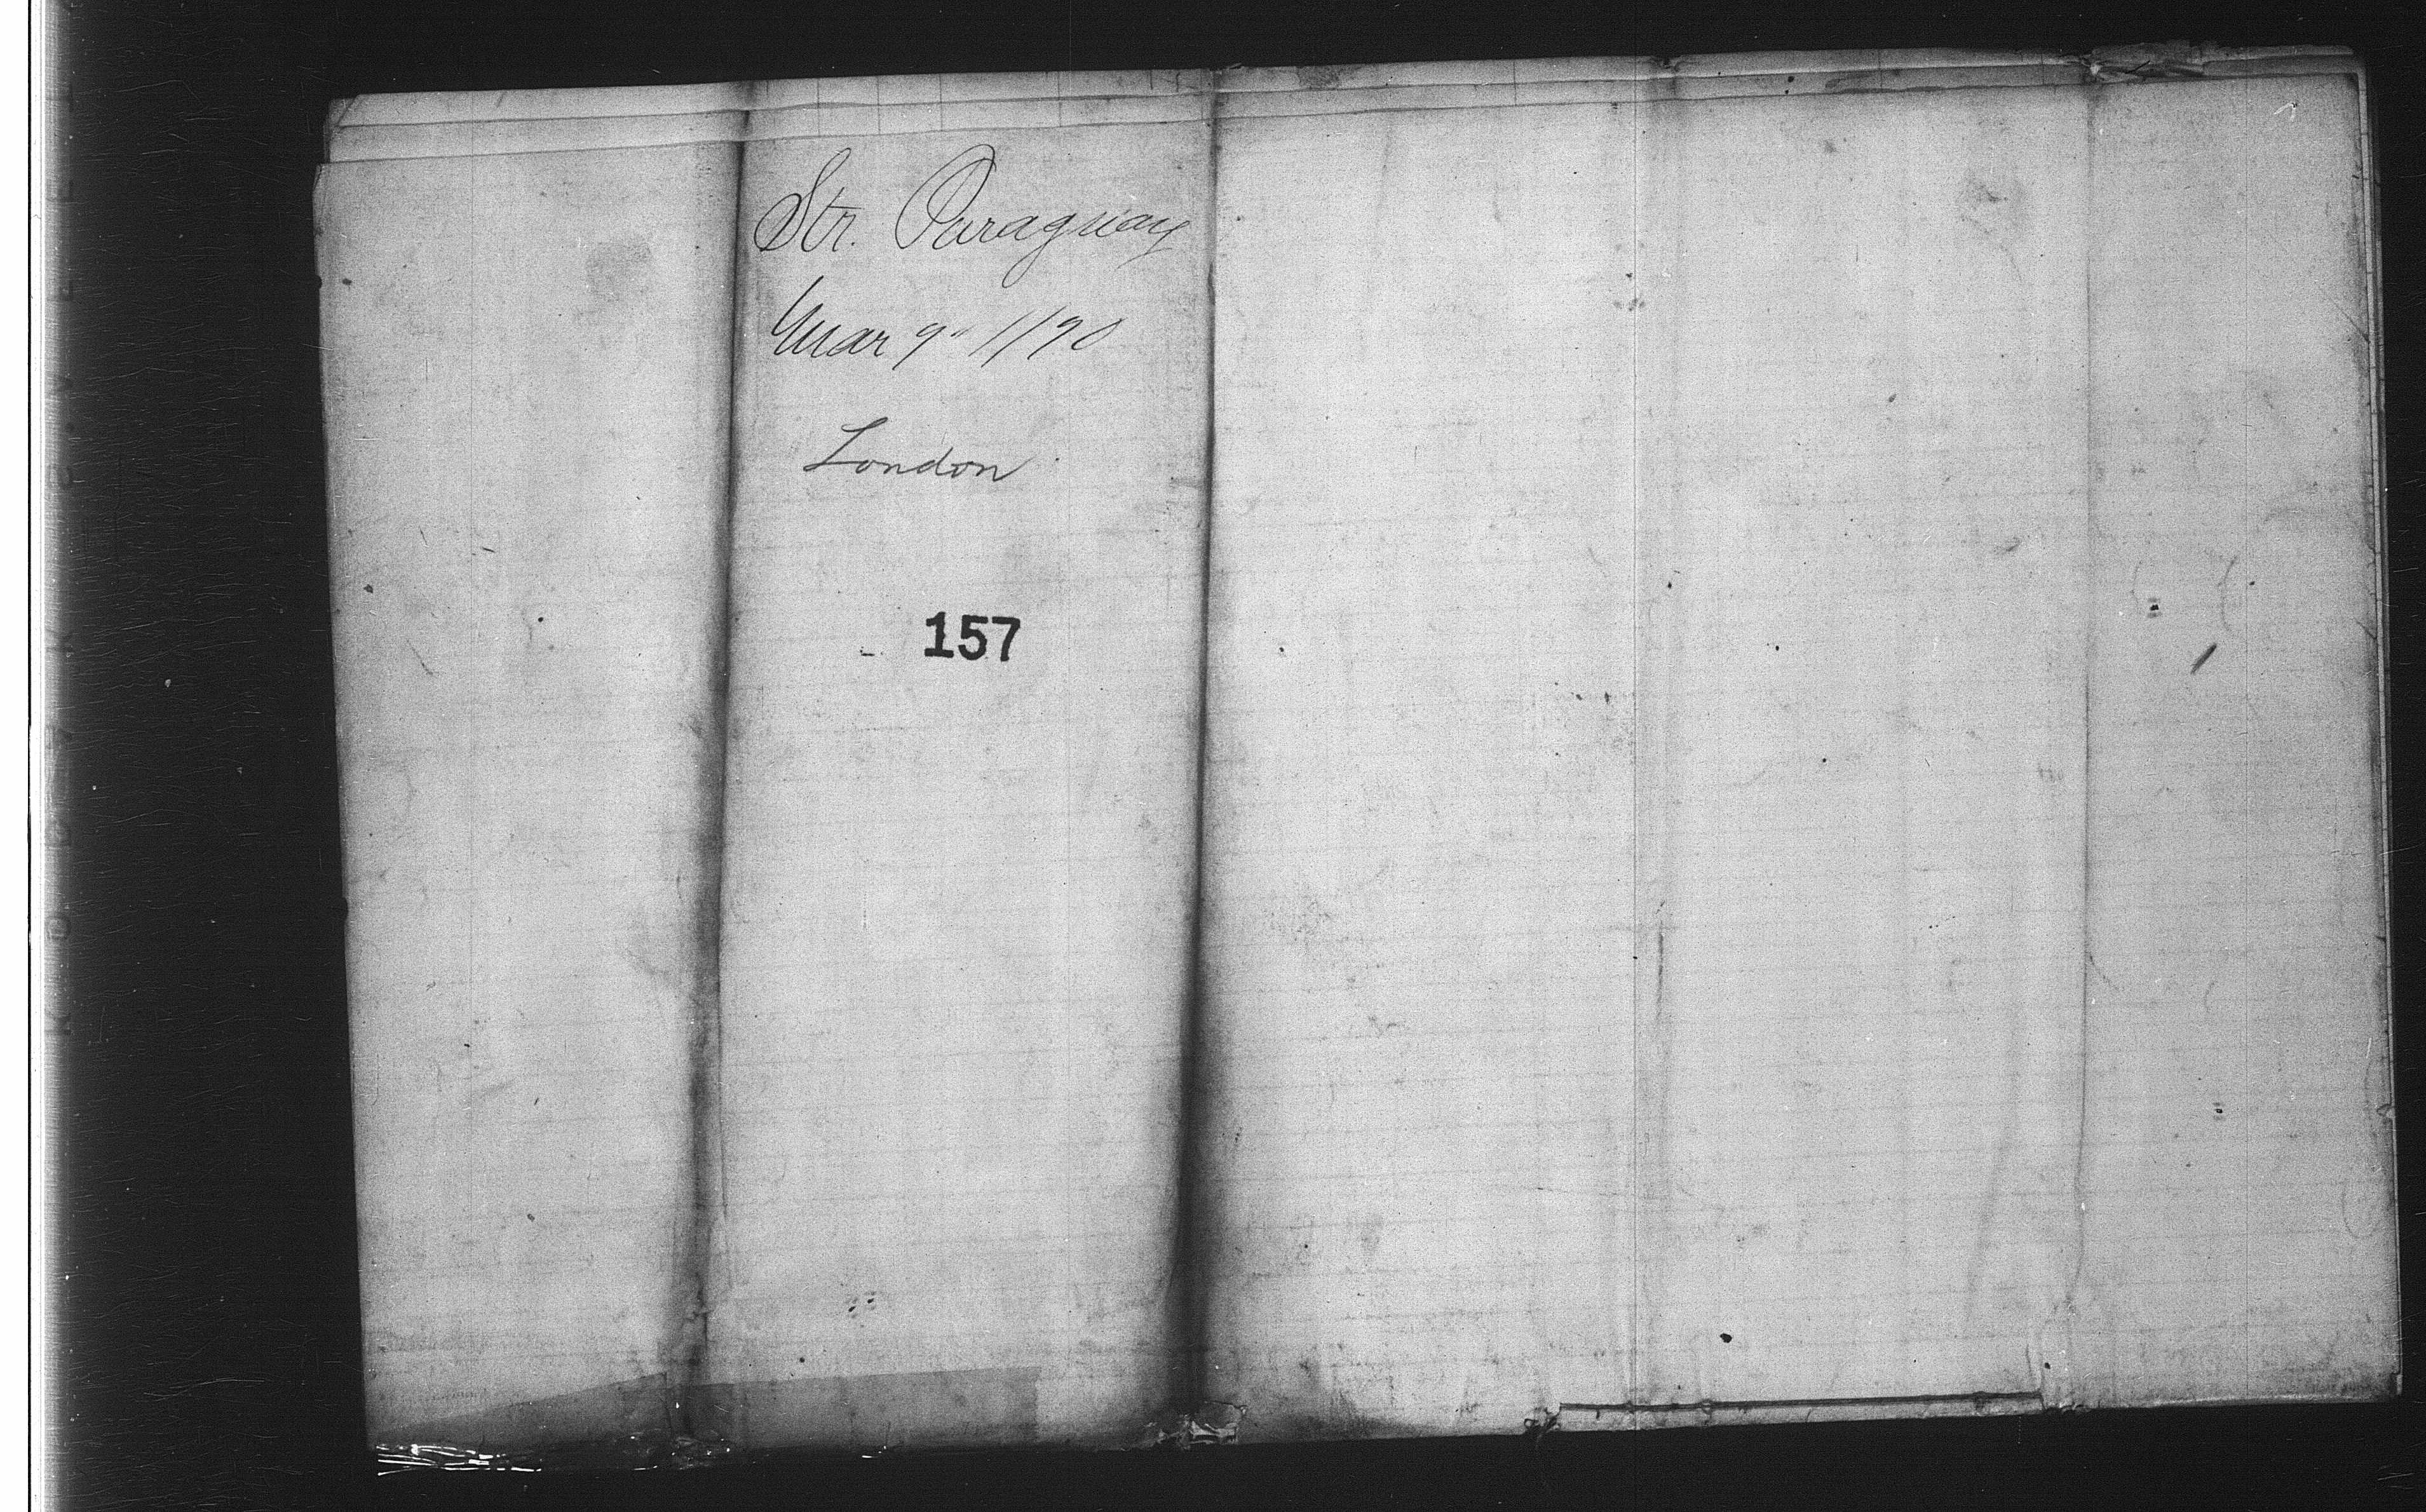 Str. Paraguay
Mar 9" //90
London
157